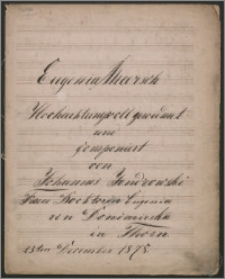 Eugenia Marsch
Hochachtungsvoll gewidmet
und
componiert
von
Johannes Jendrowski
Frau Doktorin Eugenia
von Donimirska
in Thorn
13ten December 1875